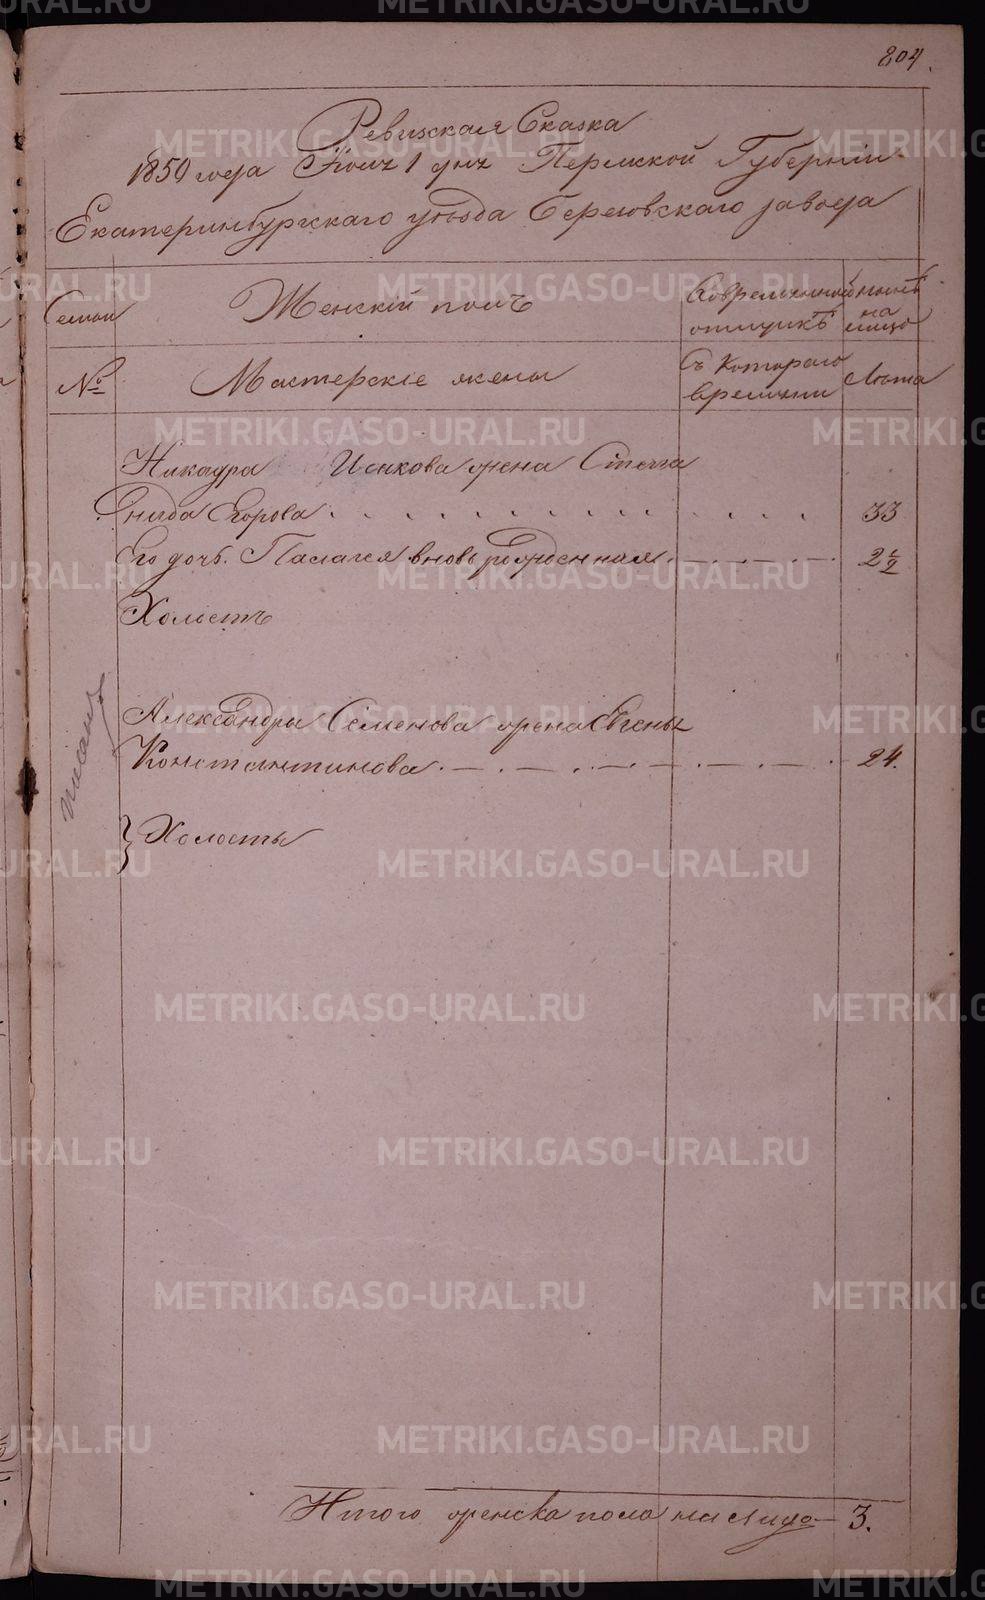 804.
Ревизская Сказка
1850 года 1 дня Пермской Губерніи
Екатеринбургскаго уѣзда Березовскаго завода
Семьи Женскій полъ Во временной отлучкѣ нынѣ на лицо
№ Мастерскіе жены Съ котораго времени Лѣта
Никандра Исакова жена Степа
нида Егорова 33
Его дочь Палагея вновь рожденная 2½
Холостъ
писанъ
Александра Семенова жена Евгенья
Константинова 24.
Холосты
Итого женска пола на лицо 3.
METRIKI.GASO-URAL.RU